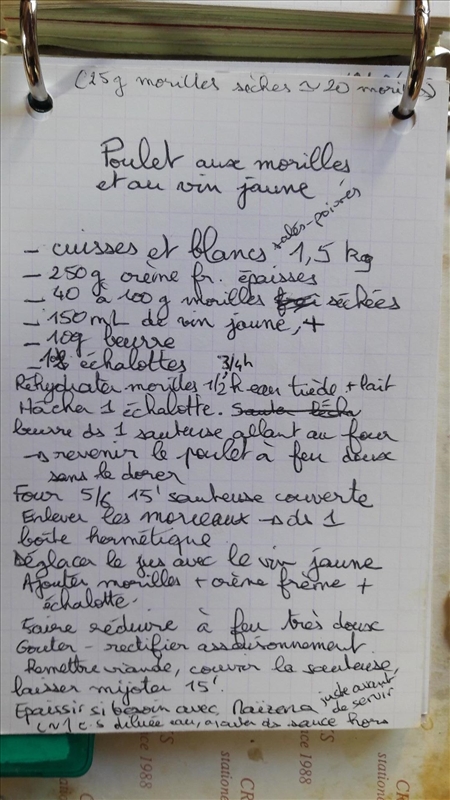 (25g morilles sèches ~ 20 morilles)
Poulet aux morilles
et au vin jaune
salés-poivrés
- cuisses et blancs 1,5 kg
- 250g crème fr. épaisses
- 40 à 100g morilles séchées
- 150mL de vin jaune, +
- 10g beurre
- 1 échalottes 3/4h
Réhydrater morilles 1/2h eau tiède + lait
Hâcher 1 échalotte.
beurre ds 1 sauteuse allant au four
→ revenir le poulet à feu doux
sans le dorer
Four 5/6 15' sauteuse couverte
Enlever les morceaux → ds 1
boîte hermétique.
Déglacer le jus avec le vin jaune
Ajouter morilles + crème frème +
échalotte.
Faire réduire à feu très doux
Gouter - rectifier assaisonnement.
Remettre viande, couvrir la sauteuse,
laisser mijoter 15'.
Epaissir si besoin avec Maïzena juste avant
de servir
(~1 c.s diluée eau, ajouter ds sauce hors
CR
stationé
since 1988